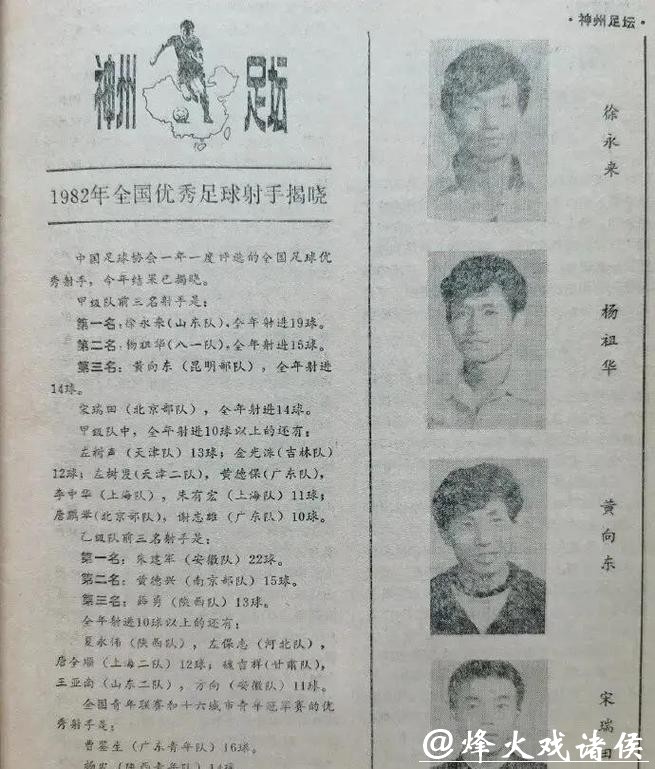 ·神州足坛·
神州足坛
1982年全国优秀足球射手揭晓
中国足球协会一年一度评选的全国足球优
秀射手，今年结果已揭晓。
甲级队前三名射手是：
第一名：徐永来（山东队），全年射进19球。
第二名：杨祖华（八一队），全年射进15球。
第三名：黄向东（昆明部队），全年射进
14球。
宋瑞田（北京部队），全年射进14球。
甲级队中，全年射进10球以上的还有：
左树声（天津队）13球；金光洙（吉林队）
12球；左树贤（天津二队），黄德保（广东队），
李中华（上海队），朱有宏（上海队）11球；
唐鹏举（北京部队），谢志雄（广东队）10球。
乙级队前三名射手是：
第一名：朱建军（安徽队）22球。
第二名：黄德兴（南京部队）15球。
第三名：薛勇（陕西队）13球。
全年射进10球以上的还有：
夏永伟（陕西队），左保志（河北队），
唐全顺（上海二队）12球；魏吉祥（甘肃队），
王亚南（山东二队），方向（安徽队）11球。
全国青年联赛和十六城市青年冠军赛的优
秀射手是：
曹鉴生（广东青年队）16球。
徐永来
杨祖华
黄向东
宋瑞田
@烽火戏诸侯